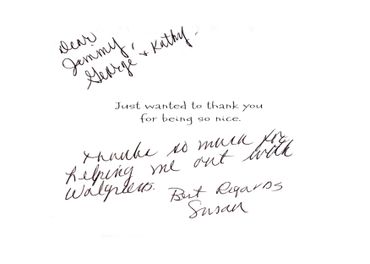 Dear
Jimmy,
George, + Kathy.
Just wanted to thank you
for being so nice.
thanks so much for
helping me out with
Walgreens.
Best Regards
Susan